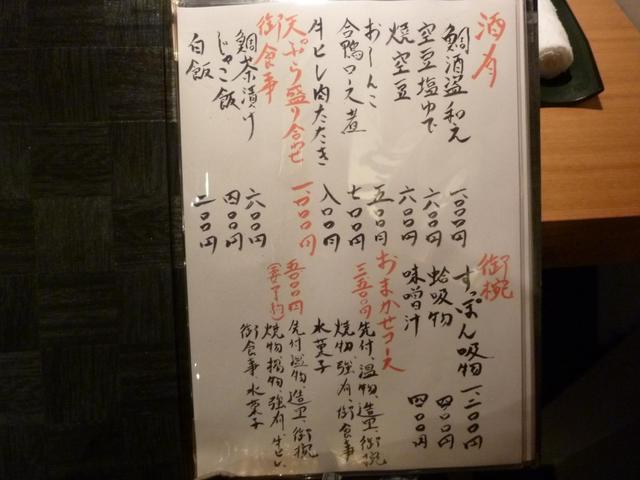 酒肴
鯛酒盗和え 一、〇〇〇円
空豆塩ゆで 六〇〇円
焼空豆 六〇〇円
おしんこ 五〇〇円
合鴨ロース煮 七〇〇円
牛ヒレ肉たたき 八〇〇円
天ぷら盛り合せ 一、〇〇〇円
御食事
鯛茶漬け 六〇〇円
じゃこ飯 四〇〇円
白飯 二〇〇円
御椀
すっぽん吸物 一、二〇〇円
蛤吸物 四〇〇円
味噌汁 四〇〇円
おまかせコース
三、五〇〇円 先付、温物、造里、御椀
焼物、強肴、御食事
水菓子
五、〇〇〇円 先付、温物、造里、御椀
(要予約) 焼物、揚物、強肴、牛ヒレ
御食事 水菓子